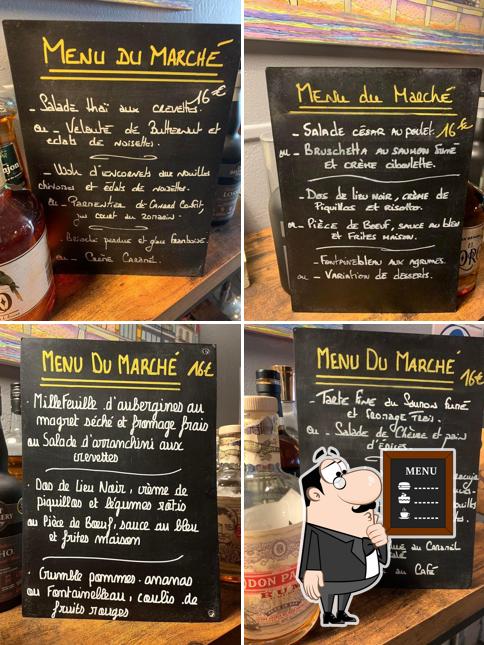 MENU DU MARCHÉ
16€
- Salade thaï aux crevettes.
ou - Velouté de Butternut et
éclats de noisettes.
- Wok d'encornets aux nouilles
chinoises et éclats de noisettes.
ou - Parmentier de Canard Confit,
jus court au romarin.
- Brioche perdue et glace framboise.
ou - Crème Caramel.
MENU du Marché
- SALADE CÉSAR AU POULET. 16€
ou - BRUSCHETTA AU SAUMON FUMÉ
ET CRÈME CIBOULETTE.
- DOS DE LIEU NOIR, CRÈME DE
PIQUILLOS ET RISOTTO.
ou - PIÈCE DE BOEUF, SAUCE AU BLEU
ET FRITES MAISON.
- FONTAINEBLEAU AUX AGRUMES.
ou - VARIATION DE DESSERTS.
MENU DU MARCHÉ 16€
- Millefeuille d'aubergines au
magret séché et fromage frais
ou Salade d'arranchini aux
crevettes
- Dos de Lieu Noir, crème de
piquillos et légumes rotis
ou Pièce de Boeuf, sauce au bleu
et frites maison
- Crumble pommes-ananas
ou Fontainebleau, coulis de
fruits rouges
MENU DU MARCHÉ
16€
- Tarte fine du Saumon fumé
et fromage frais.
ou - Salade de Chèvre et pain
d'épices.
MENU
au Caramel
au Café